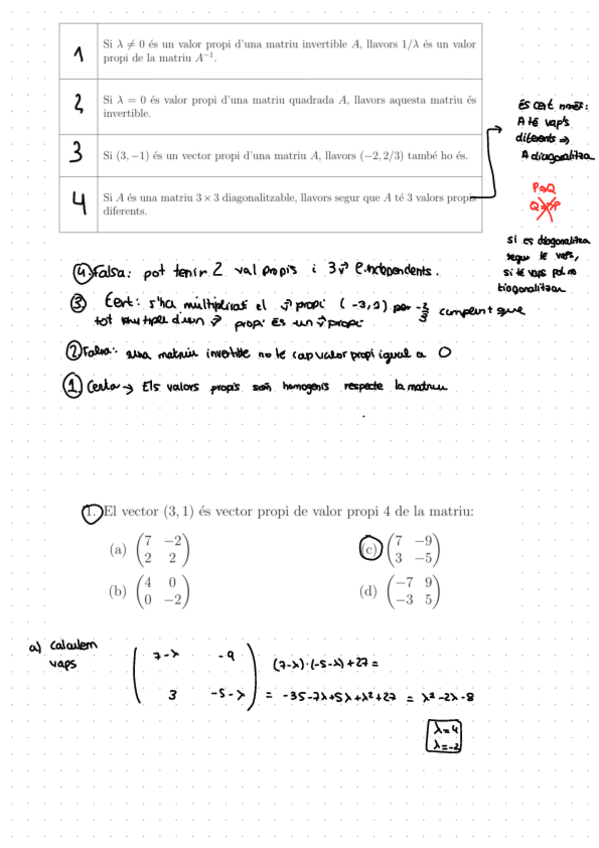 1
Si λ ≠ 0 és un valor propi d'una matriu invertible A, llavors 1/λ és un valor
propi de la matriu A⁻¹.
2
Si λ = 0 és valor propi d'una matriu quadrada A, llavors aquesta matriu és
invertible.
3
Si (3, −1) és un vector propi d'una matriu A, llavors (−2, 2/3) també ho és.
4
Si A és una matriu 3 × 3 diagonalitzable, llavors segur que A té 3 valors propis
diferents.
és cert només:
A té vap's
diferents ⇒
A diagonalitza
P⇒Q
Q⇒P
si es diagonalitza
segur té veps,
si té vaps pot no
④ Falsa: pot tenir 2 val propis i 3 v⃗ P. independents.
③ Cert: s'ha multiplicat el v⃗ propi (-3,2) per -2/3 complent que
tot multiple d'un v⃗ propi és un v⃗ propi
② Falsa: una matriu invertible no te cap valor propi igual a 0
① Certa → Els valors propis son homogenis respecte la matriu
1. El vector (3, 1) és vector propi de valor propi 4 de la matriu:
(a) (7 −2 (c) (7 −9
2 2) 3 −5)
(b) (4 0 (d) (−7 9
0 −2) −3 5)
a) Calculem
vaps
7-λ -9 (7-λ)·(-5-λ)+27=
3 -5-λ = -35-7λ+5λ+λ²+27 = λ²-2λ-8
λ=4
λ=-2